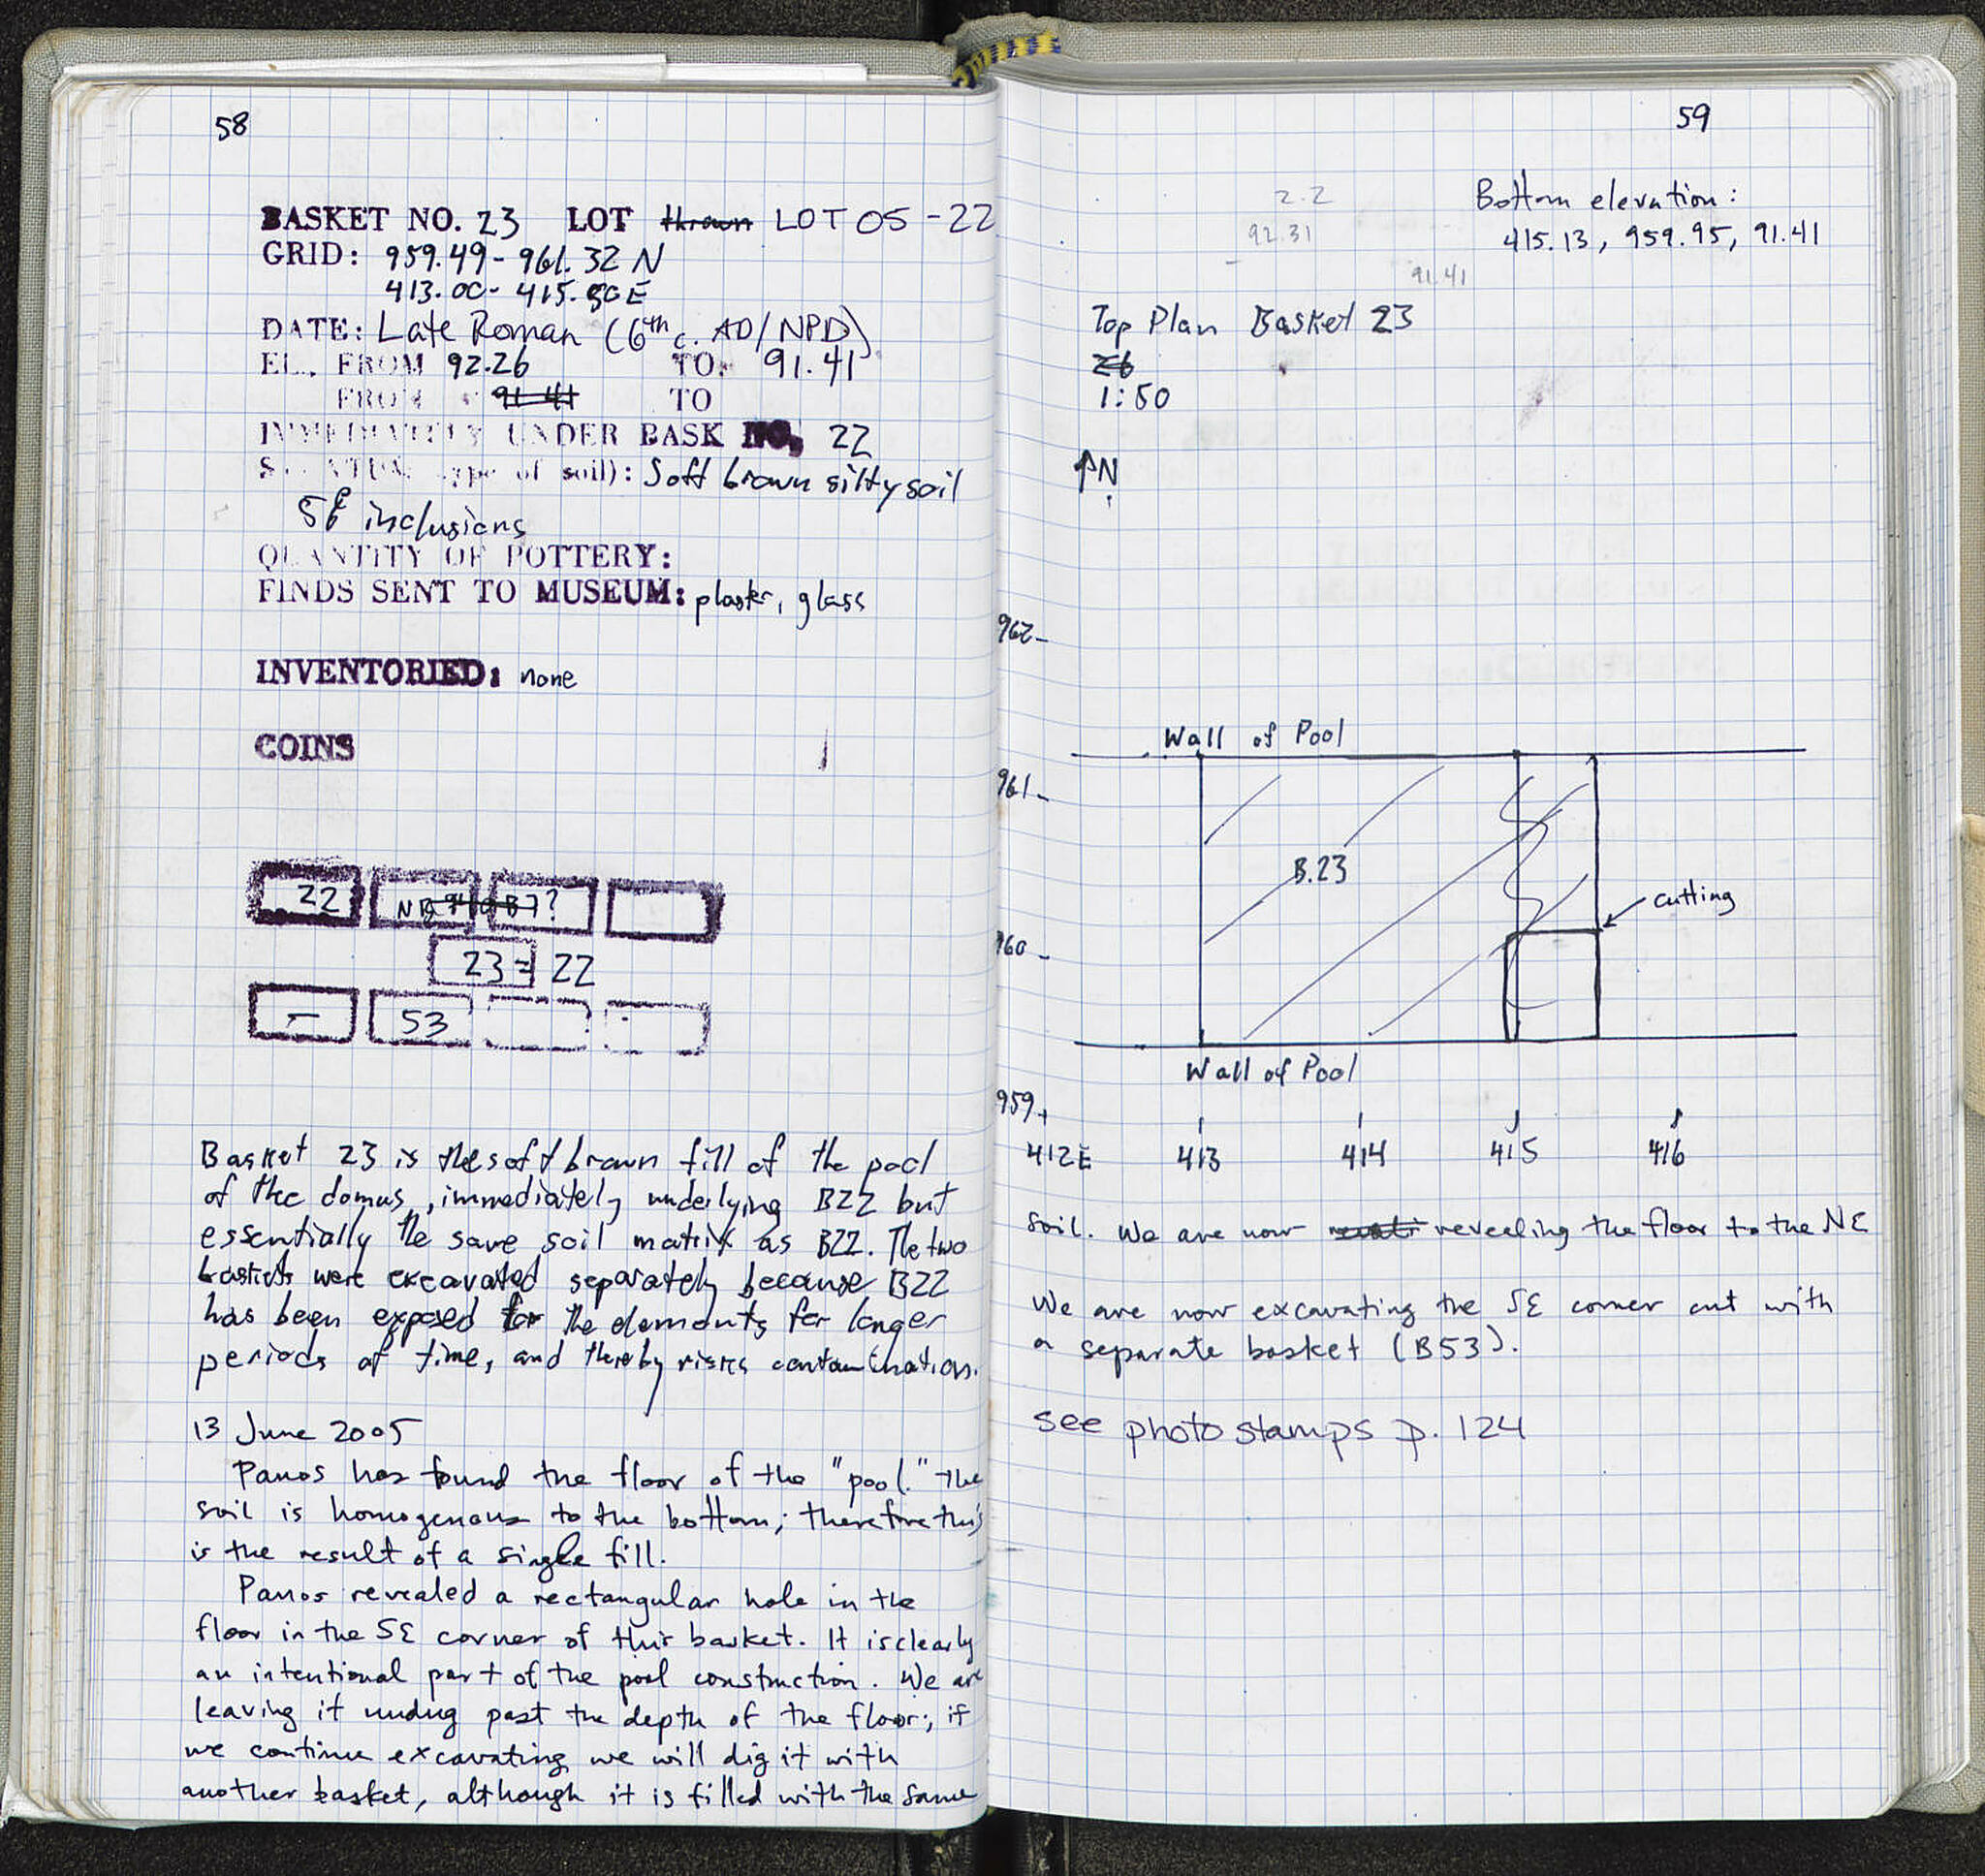 58
BASKET NO. 23 LOT thrown LOT 05-22
GRID: 959.49 - 961.32 N
413.00 - 415.50 E
DATE: Late Roman (6th c. AD/NPD)
EL. FROM 92.26 TO 91.41
FROM 91.41 TO
IMMEDIATELY UNDER BASK NO. 22
STRATUM (type of soil): Soft brown silty soil
5% inclusions
QUANTITY OF POTTERY:
FINDS SENT TO MUSEUM: plaster, glass
INVENTORIED: none
COINS
22
23 = 22
— 53
Basket 23 is the soft brown fill of the pool
of the domus, immediately underlying B22 but
essentially the same soil matrix as B22. The two
baskets were excavated separately because B22
has been exposed to the elements for longer
periods of time, and thereby risks contamination.
13 June 2005
Panos has found the floor of the "pool." The
soil is homogenous to the bottom; therefore this
is the result of a single fill.
Panos revealed a rectangular hole in the
floor in the SE corner of this basket. It is clearly
an intentional part of the pool construction. We are
leaving it undug past the depth of the floor; if
we continue excavating we will dig it with
another basket, although it is filled with the same
59
2.2
92.31
91.41
Bottom elevation:
415.13, 959.95, 91.41
Top Plan Basket 23
1:50
↑N
962
Wall of Pool
961
B.23
cutting
960
Wall of Pool
959
412E 413 414 415 416
soil. We are now revealing the floor to the NE
We are now excavating the SE corner cut with
a separate basket (B53).
see photo stamps p. 124